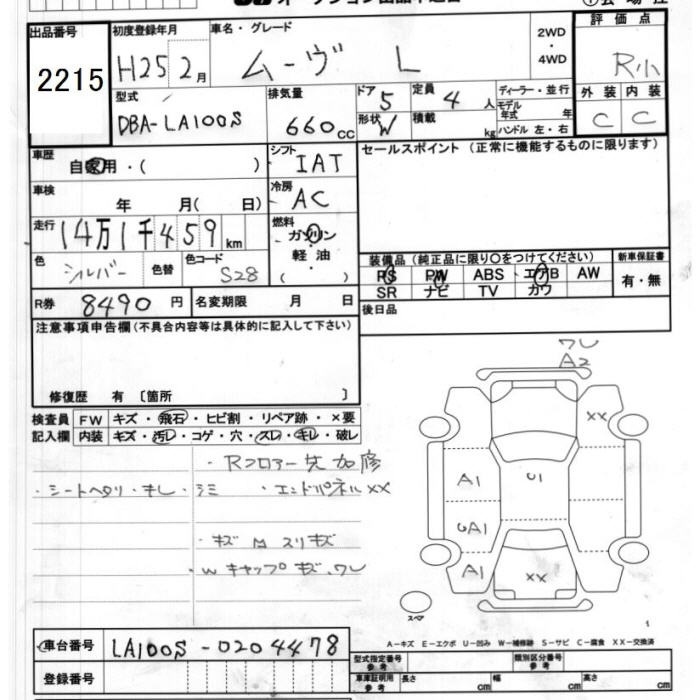 出品番号 初度登録年月 車名・グレード 2WD・4WD 評価点
2215 H25 2月 ムーヴ L R小
型式 排気量 ドア 5 定員 4人 ディーラー・並行 外装 内装
DBA-LA100S 660cc 形状 W 積載 kg モデル年式 年 C C
ハンドル 左・右
車歴 自家用・( ) シフト IAT セールスポイント(正常に機能するものに限ります)
車検 年 月( 日) 冷房 AC
走行 14万1千459km 燃料 ガソリン
軽油
( )
色 シルバー 色替 色コード S28
装備品(純正品に限り〇をつけてください) 新車保証書
PS PW ABS エアB AW 有・無
SR ナビ TV カワ
R券 8490円 名変期限 月 日 後日品
注意事項申告欄(不具合内容等は具体的に記入して下さい)
修復歴 有〔箇所 〕
検査員 FW キズ・飛石・ヒビ割・リペア跡・×要
記入欄 内装 キズ・汚レ・コゲ・穴・スレ・キレ・破レ
・Rフロアー先 加修
・シートヘタリ・キレ・シミ ・エンドパネルXX
・キズ M スリキズ
・Wキャップキズ、ワレ
ワレ
A2
XX
A1 U1
A1
A1 XX
スペア
1
A-キズ E-エクボ U-凹み W-補修跡 S-サビ C-腐食 XX-交換済
車台番号 LA100S-0204478
型式指定番号 参考 類別区分番号 参考
登録番号 車庫証明用 参考 長さ cm 幅 cm 高さ cm